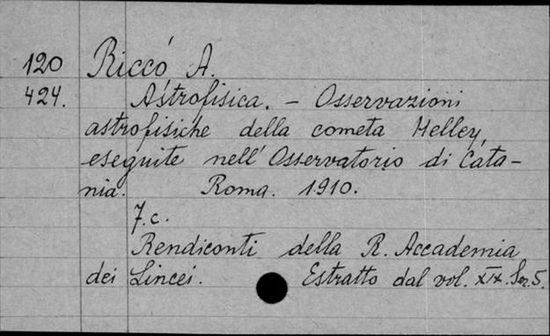 120 Riccó A.
424. Astrofisica. - Osservazioni
astrofisiche della cometa Helley
eseguite nell' Osservatorio di Cata-
nia. Roma. 1910.
7.c.
Rendiconti della R. Accademia
dei Lincei. Estratto dal vol. XIX. Ser. 5.